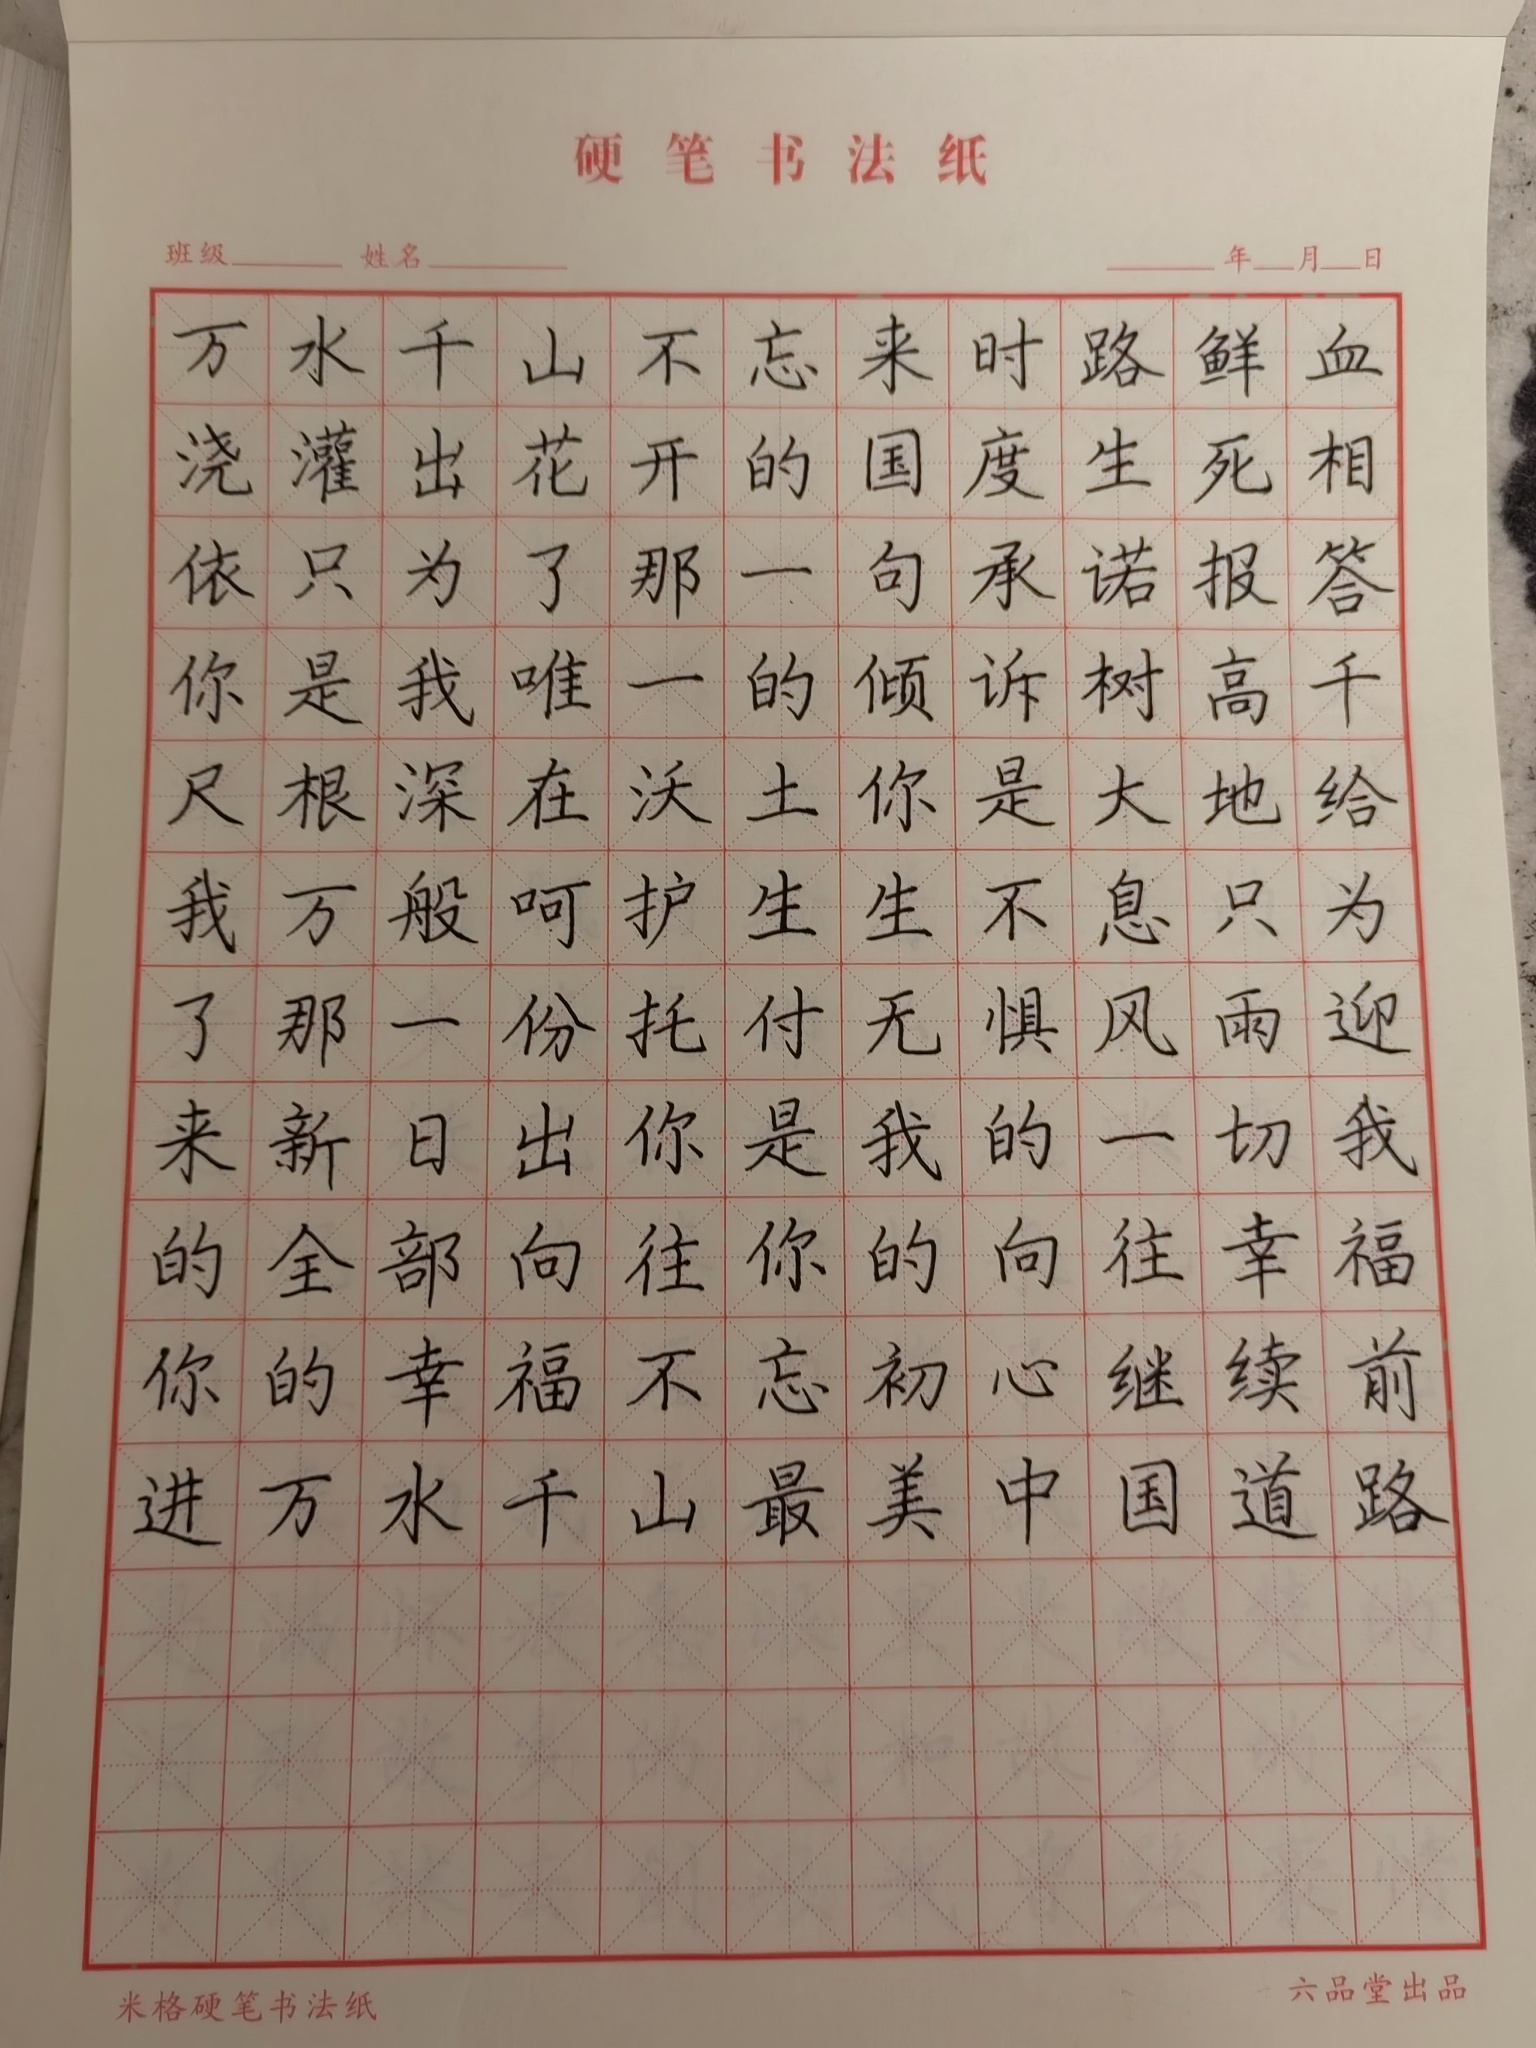 硬笔书法纸
班级 姓名 年 月 日
万水千山不忘来时路鲜血
浇灌出花开的国度生死相
依只为了那一句承诺报答
你是我唯一的倾诉树高千
尺根深在沃土你是大地给
我万般呵护生生不息只为
了那一份托付无惧风雨迎
来新日出你是我的一切我
的全部向往你的向往幸福
你的幸福不忘初心继续前
进万水千山最美中国道路
米格硬笔书法纸 六品堂出品